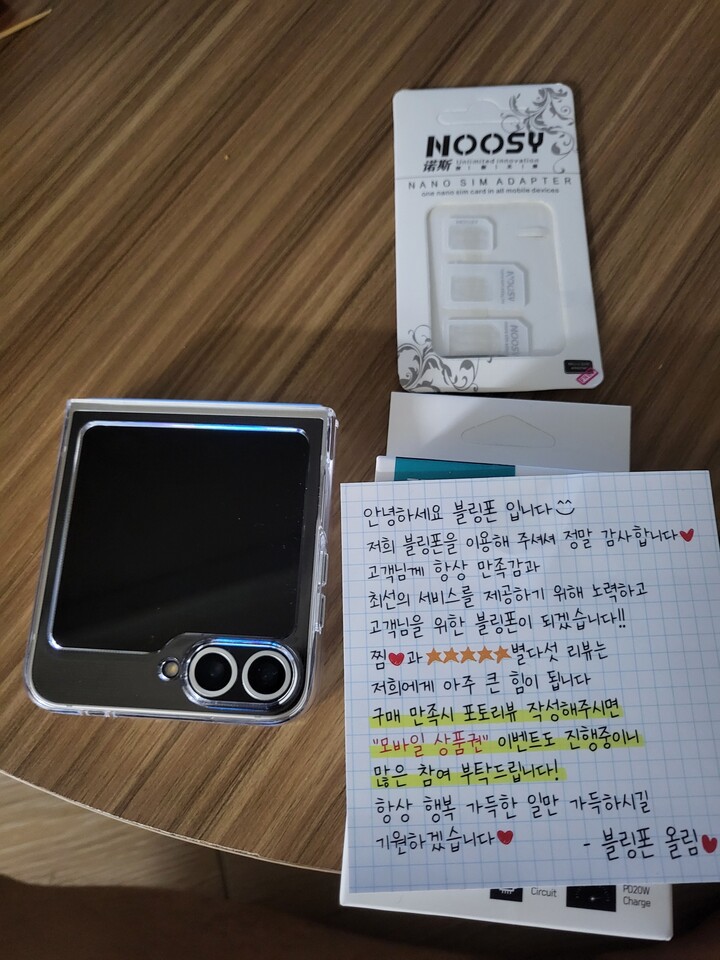 NOOSY
诺斯 Unlimited innovation
NANO SIM ADAPTER
one nano sim card in all mobile devices
NOOSY
NOOSY
NOOSY
안녕하세요 블링폰 입니다
저희 블링폰을 이용해 주셔서 정말 감사합니다♥
고객님께 항상 만족감과
최선의 서비스를 제공하기 위해 노력하고
고객님을 위한 블링폰이 되겠습니다!!
찜♥과 ★★★★★별다섯 리뷰는
저희에게 아주 큰 힘이 됩니다
구매 만족시 포토리뷰 작성해주시면
"모바일 상품권" 이벤트도 진행중이니
많은 참여 부탁드립니다!
항상 행복 가득한 일만 가득하시길
기원하겠습니다♥
- 블링폰 올림♥
Circuit
PD20W
Charge